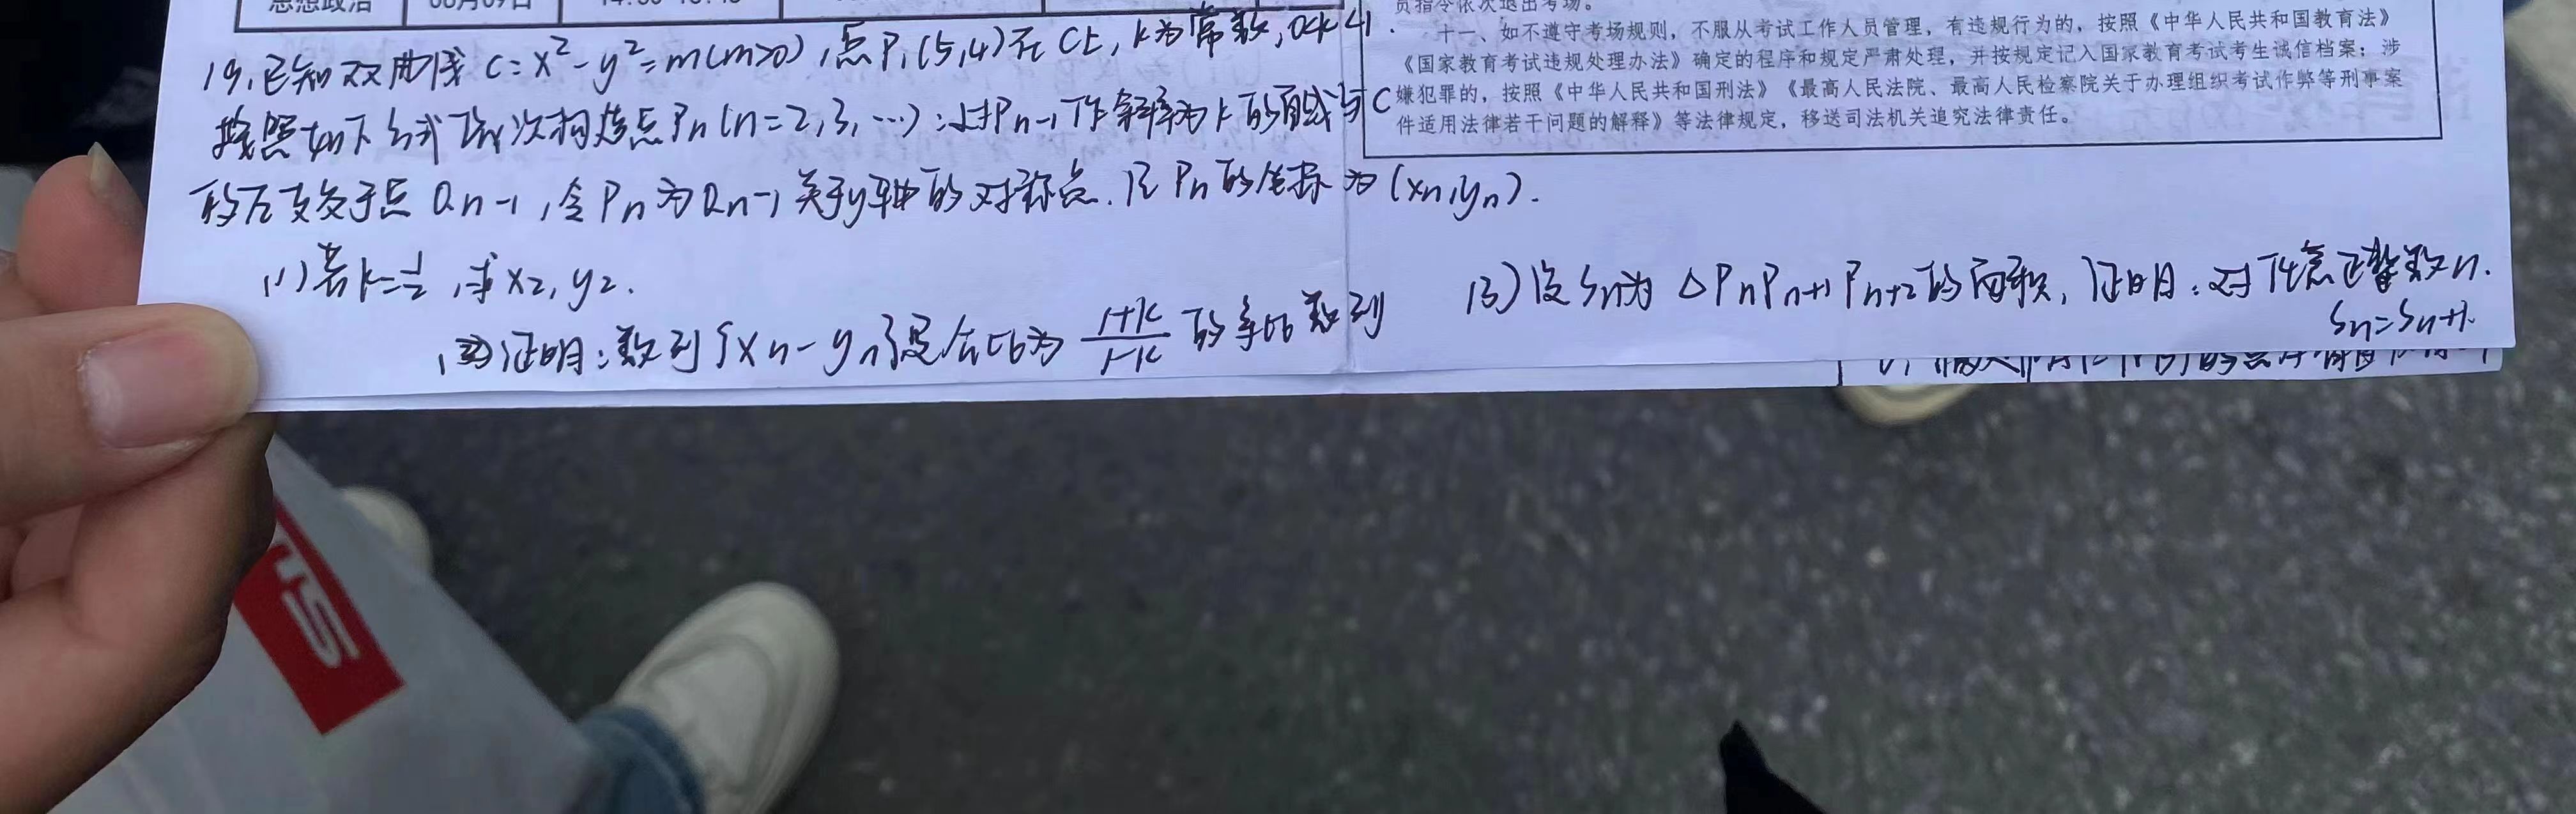 思想政治
员指令依次退出考场。
十一、如不遵守考场规则，不服从考试工作人员管理，有违规行为的，按照《中华人民共和国教育法》
《国家教育考试违规处理办法》确定的程序和规定严肃处理，并按规定记入国家教育考试考生诚信档案；涉
嫌犯罪的，按照《中华人民共和国刑法》《最高人民法院、最高人民检察院关于办理组织考试作弊等刑事案
件适用法律若干问题的解释》等法律规定，移送司法机关追究法律责任。
19.已知双曲线 C: x²-y²=m(m>0), 点P₁(5,4)在C上, k为常数, 0<k<1.
按照如下方式依次构造点Pn(n=2,3,…):过Pn-1作斜率为k的直线与C
的左支交于点Qn-1,令Pn为Qn-1关于y轴的对称点.记Pn的坐标为(xn,yn).
(1)若k=1/2,求x2,y2.
(2)证明:数列{xn-yn}是公比为 (1+k)/(1-k) 的等比数列
(3)设Sn为△PnPn+1Pn+2的面积,证明:对任意正整数n.
Sn=Sn+1.